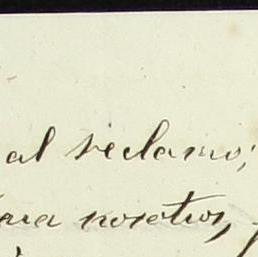 al reclamo;
para nosotros,